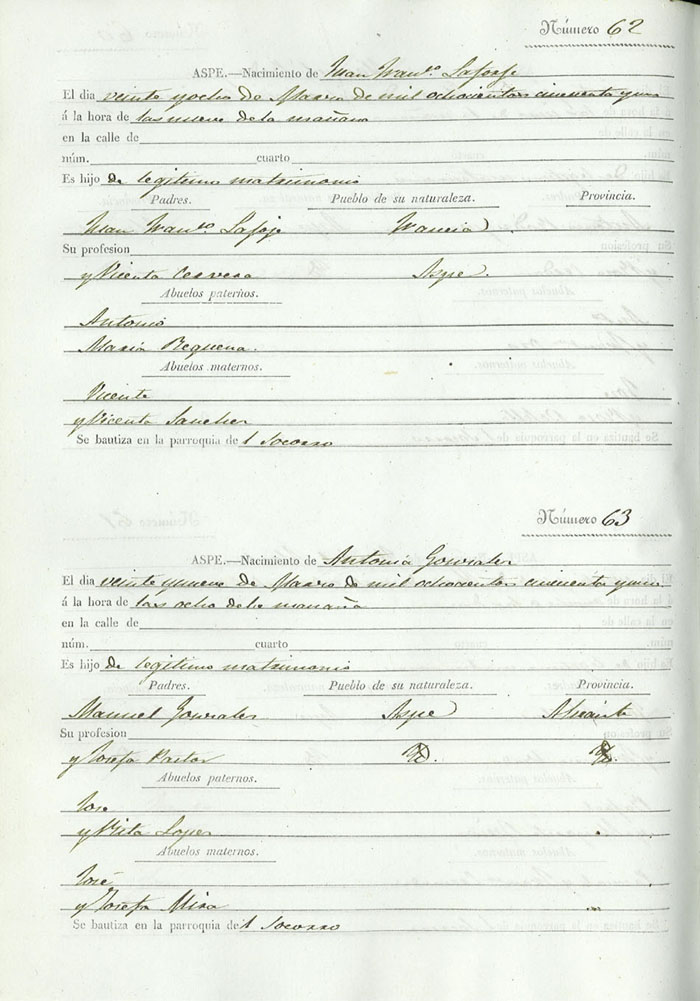 Número 62
ASPE.—Nacimiento de Juan Fran.co Laforje
El dia veinte y ocho de Marzo de mil ochocientos cincuenta y uno
á la hora de las nueve de la mañana
en la calle de
núm. cuarto
Es hijo de legitimo matrimonio
Padres. Pueblo de su naturaleza. Provincia.
Juan Fran.co Francia
Su profesion
y Vicenta Cervera Aspe.
Abuelos paternos.
Antonio
Maria Requena.
Abuelos maternos.
Vicente
y Vicenta Sanchez
Se bautiza en la parroquia del Socorro
Número 63
ASPE.—Nacimiento de Antonia Gonzales
El dia veinte y nueve de Marzo de mil ochocientos cincuenta y uno
á la hora de las ocho de la mañana
en la calle de
núm. cuarto
Es hijo de legitimo matrimonio
Padres. Pueblo de su naturaleza. Provincia.
Manuel Gonzales Aspe Alicante
Su profesion
y Josefa Pastor
Abuelos paternos.
Jose
y Rita Lopez
Abuelos maternos.
José
y Josefa Mira
Se bautiza en la parroquia del Socorro